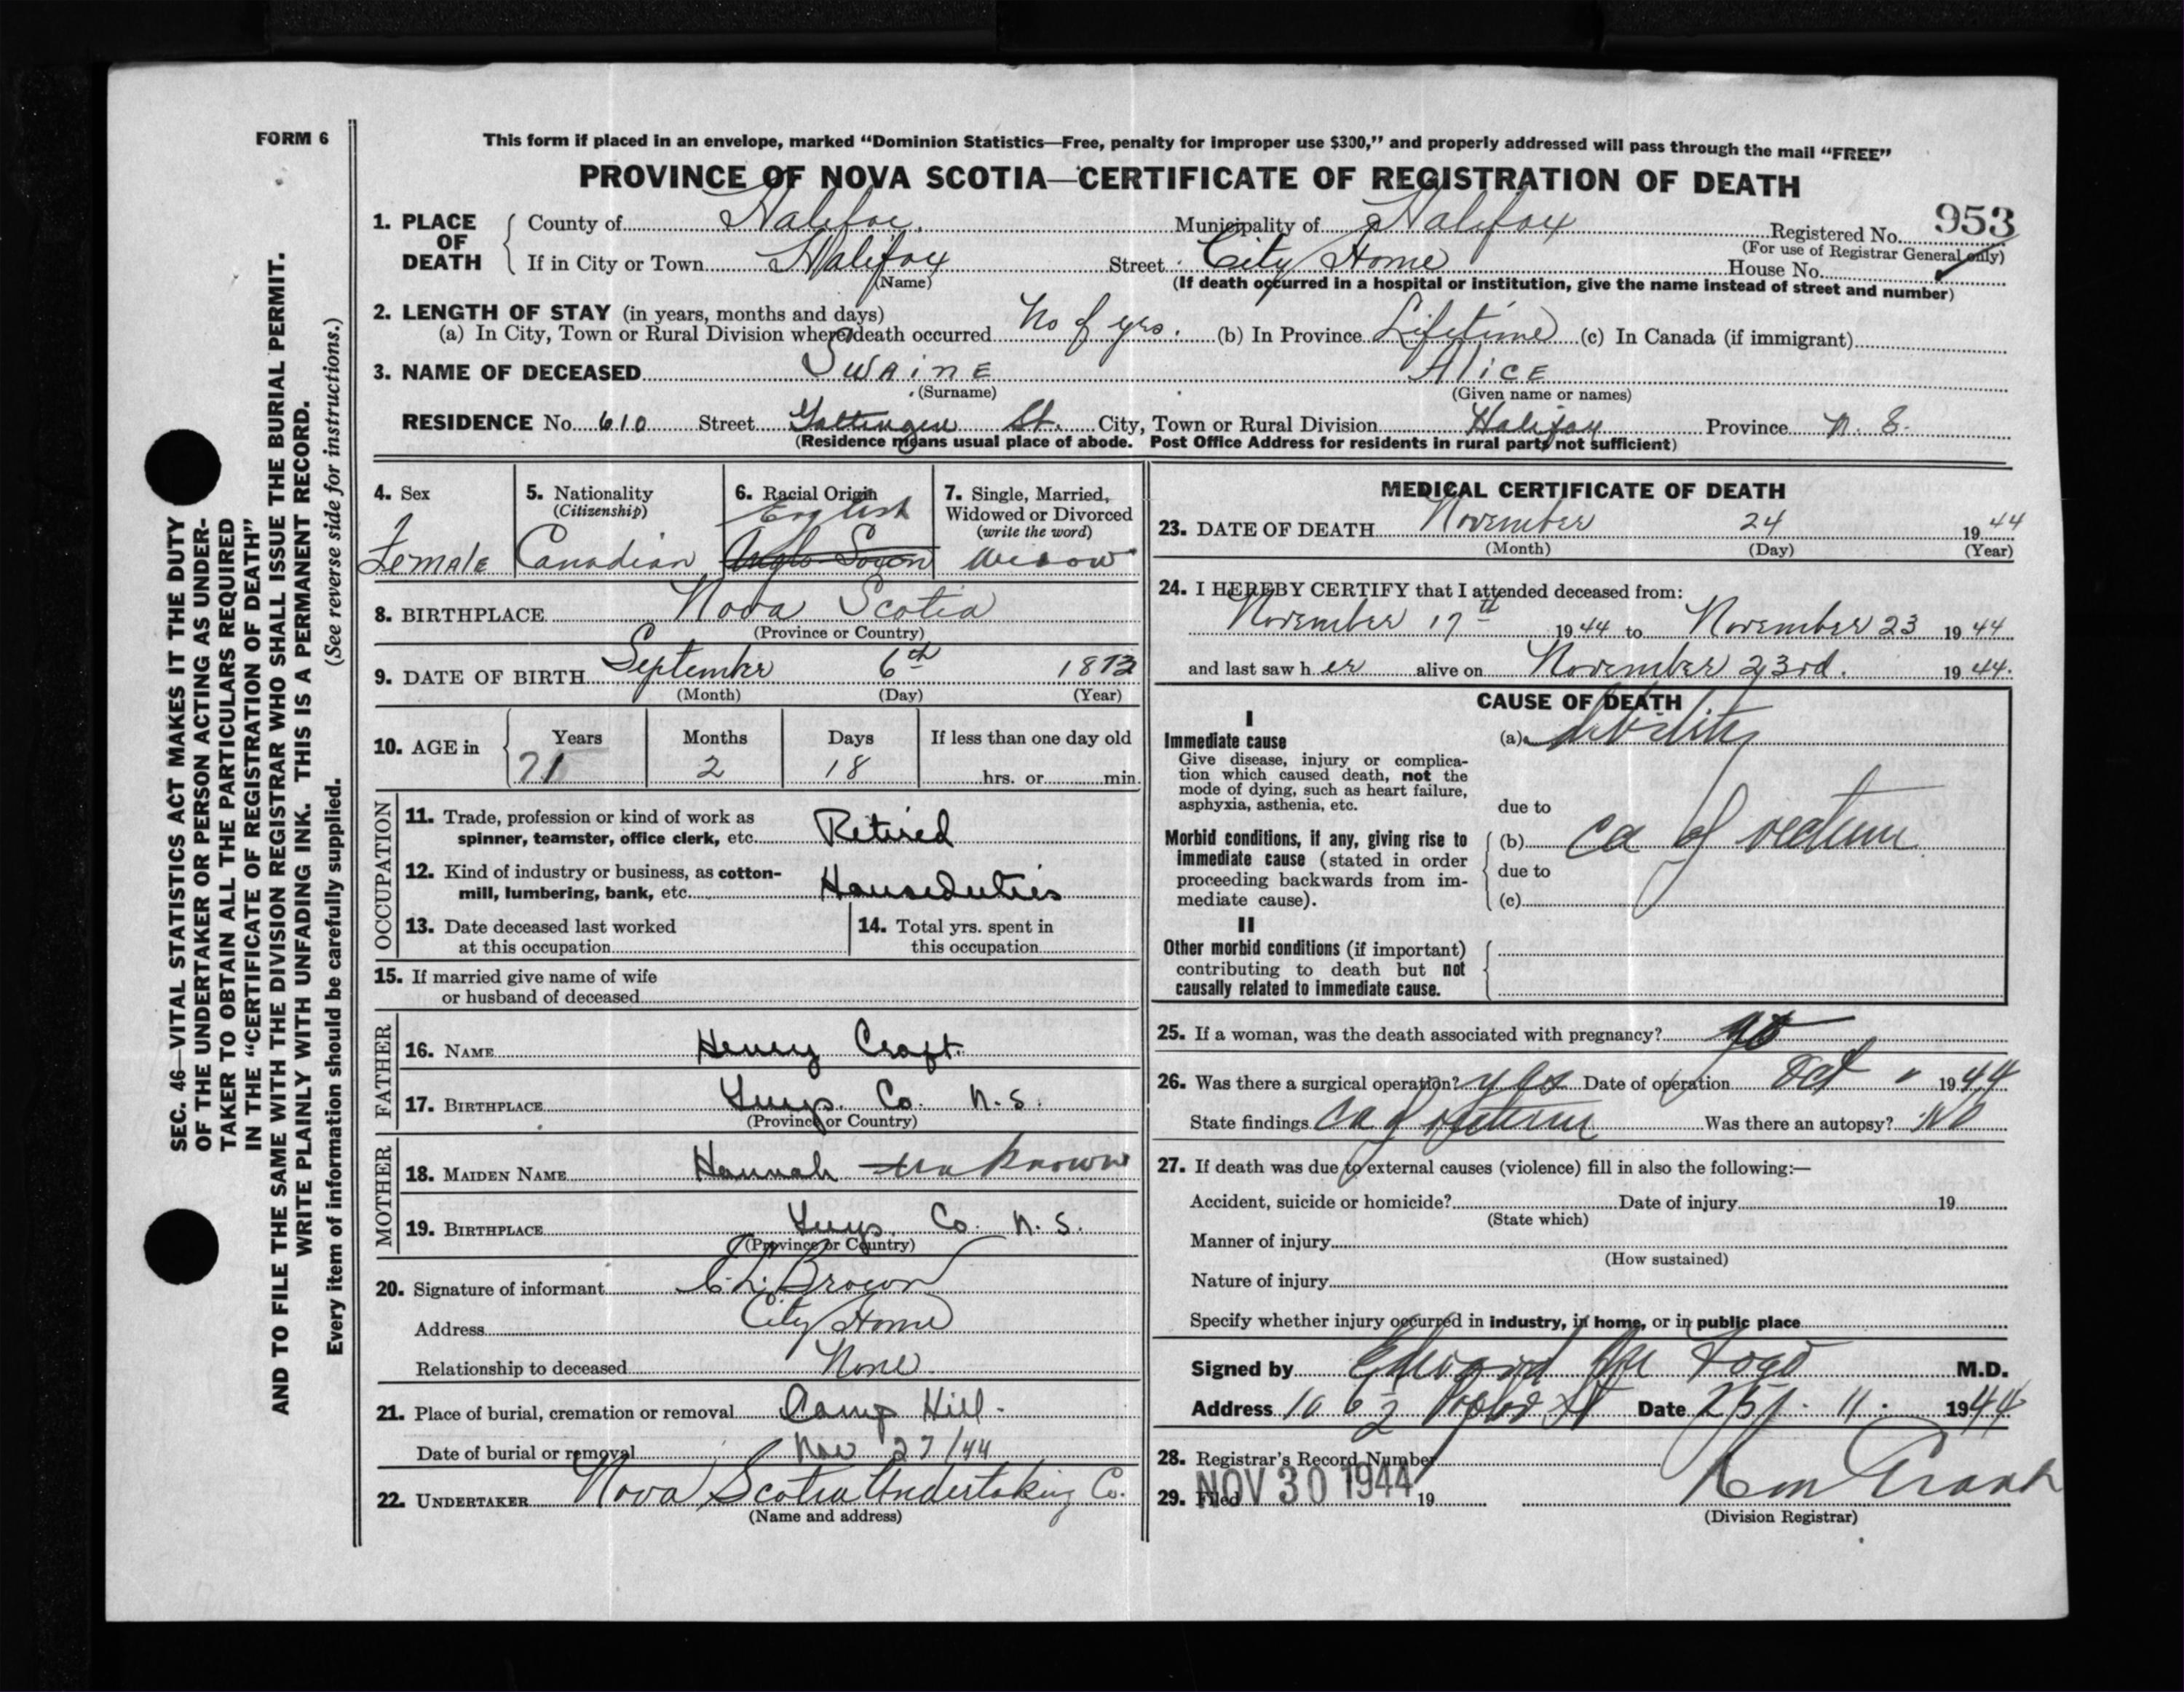 FORM 6
This form if placed in an envelope, marked “Dominion Statistics—Free, penalty for improper use $300,” and properly addressed will pass through the mail “FREE”
PROVINCE OF NOVA SCOTIA—CERTIFICATE OF REGISTRATION OF DEATH
1. PLACE OF DEATH County of Halifax. Municipality of Halifax Registered No. 953
(For use of Registrar General only)
If in City or Town Halifax Street City Home House No.
(Name) (If death occurred in a hospital or institution, give the name instead of street and number)
2. LENGTH OF STAY (in years, months and days)
(a) In City, Town or Rural Division where death occurred No of yrs. (b) In Province Lifetime (c) In Canada (if immigrant)
3. NAME OF DECEASED Swaine Alice
(Surname) (Given name or names)
RESIDENCE No. 610 Street Gottingen St. City, Town or Rural Division Halifax Province N. S.
(Residence means usual place of abode. Post Office Address for residents in rural parts not sufficient)
4. Sex
Female
5. Nationality
(Citizenship)
Canadian
6. Racial Origin
English
Anglo Saxon
7. Single, Married,
Widowed or Divorced
(write the word)
Widow
8. BIRTHPLACE Nova Scotia
(Province or Country)
9. DATE OF BIRTH September 6th 1873
(Month) (Day) (Year)
10. AGE in Years Months Days If less than one day old
71 2 18 hrs. or min.
OCCUPATION
11. Trade, profession or kind of work as
spinner, teamster, office clerk, etc. Retired
12. Kind of industry or business, as cotton-
mill, lumbering, bank, etc. Houseduties
13. Date deceased last worked
at this occupation
14. Total yrs. spent in
this occupation
15. If married give name of wife
or husband of deceased
FATHER
16. NAME Henry Craft.
17. BIRTHPLACE Guys. Co. N.S.
(Province or Country)
MOTHER
18. MAIDEN NAME Hannah unknown
19. BIRTHPLACE Guys. Co. N.S.
(Province or Country)
20. Signature of informant C. L. Brown
Address City Home
Relationship to deceased None
21. Place of burial, cremation or removal Camp Hill.
Date of burial or removal Nov 27/44
22. UNDERTAKER Nova Scotia Undertaking Co.
(Name and address)
MEDICAL CERTIFICATE OF DEATH
23. DATE OF DEATH November 24 1944
(Month) (Day) (Year)
24. I HEREBY CERTIFY that I attended deceased from:
November 17th 1944 to November 23 1944
and last saw her alive on November 23rd. 1944.
CAUSE OF DEATH
I
Immediate cause (a) debility
Give disease, injury or complica-
tion which caused death, not the
mode of dying, such as heart failure,
asphyxia, asthenia, etc.
due to
Morbid conditions, if any, giving rise to
immediate cause (stated in order
proceeding backwards from im-
mediate cause).
(b) Ca of rectum
due to
(c)
II
Other morbid conditions (if important)
contributing to death but not
causally related to immediate cause.
25. If a woman, was the death associated with pregnancy? no
26. Was there a surgical operation? yes Date of operation Oct 1944
State findings Ca of rectum Was there an autopsy? No
27. If death was due to external causes (violence) fill in also the following:—
Accident, suicide or homicide? Date of injury 19
(State which)
Manner of injury
(How sustained)
Nature of injury
Specify whether injury occurred in industry, in home, or in public place
Signed by Edward M.D.
Address St Date 25/ 11. 1944
28. Registrar's Record Number
29. Filed NOV 30 1944 19
(Division Registrar)
SEC. 46—VITAL STATISTICS ACT MAKES IT THE DUTY
OF THE UNDERTAKER OR PERSON ACTING AS UNDER-
TAKER TO OBTAIN ALL THE PARTICULARS REQUIRED
IN THE “CERTIFICATE OF REGISTRATION OF DEATH”
AND TO FILE THE SAME WITH THE DIVISION REGISTRAR WHO SHALL ISSUE THE BURIAL PERMIT.
WRITE PLAINLY WITH UNFADING INK. THIS IS A PERMANENT RECORD.
Every item of information should be carefully supplied. (See reverse side for instructions.)